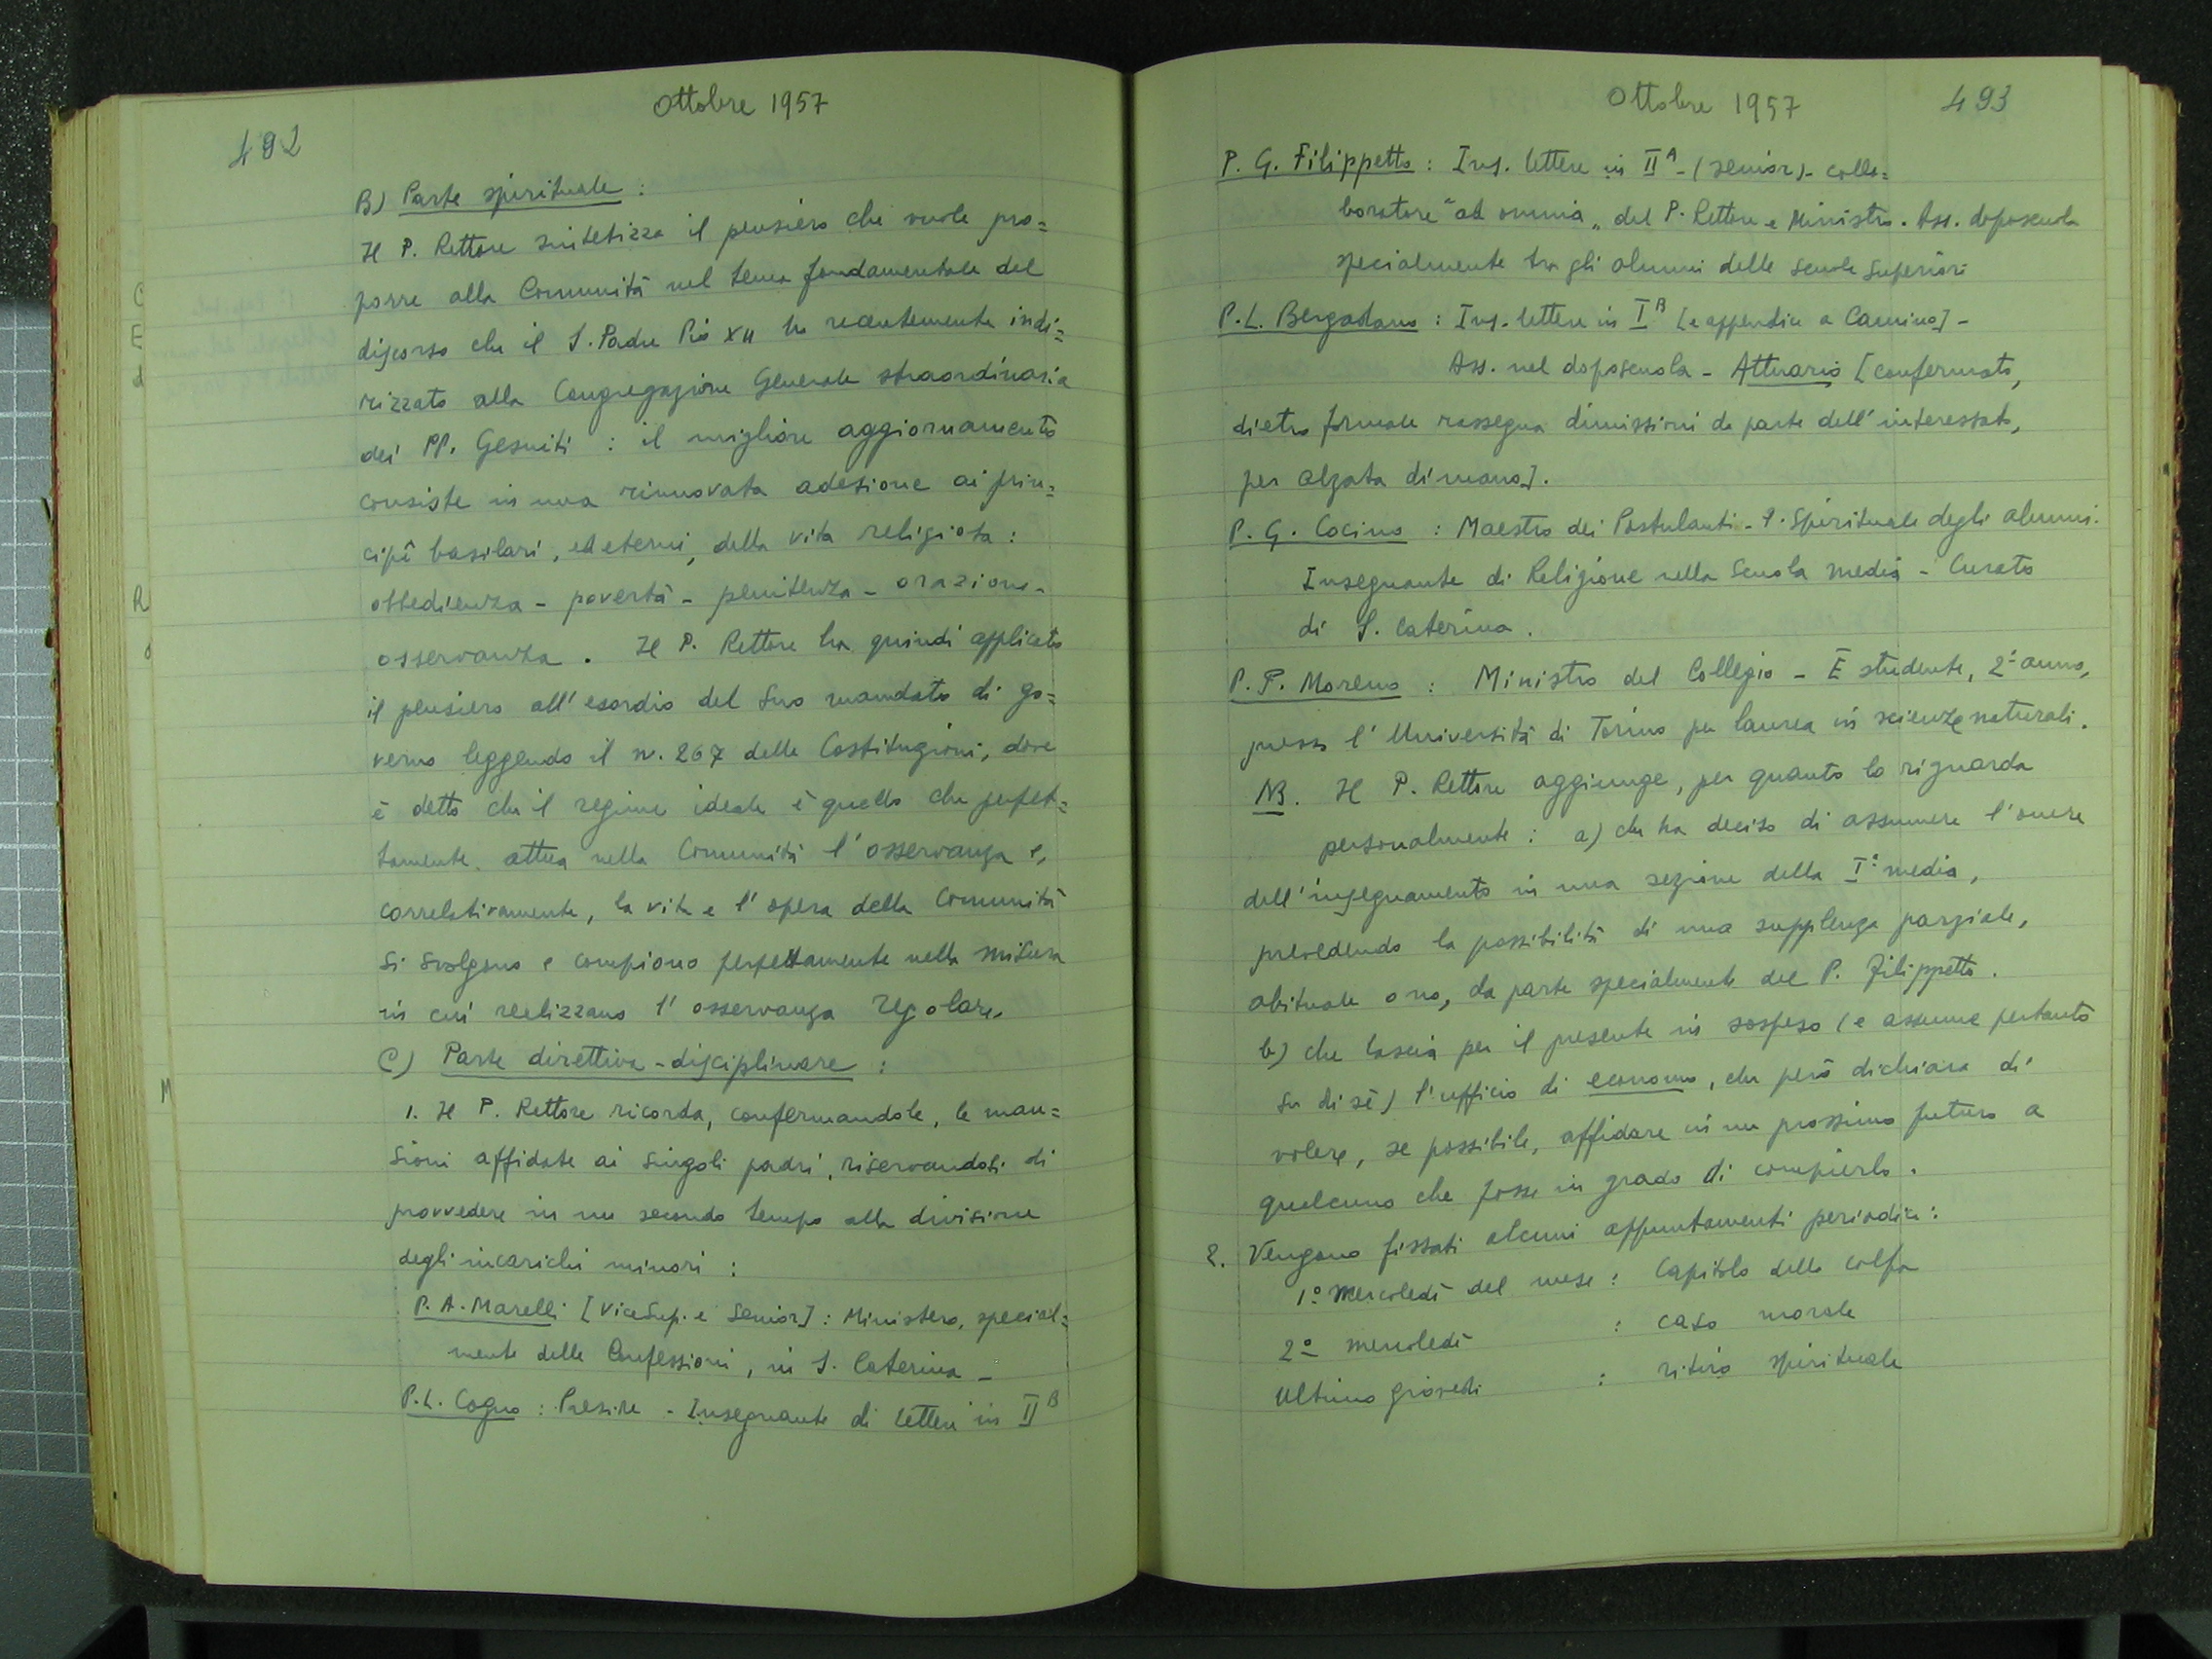 Ottobre 1957
492
B) Parte spirituale :
Il P. Rettore sintetizza il pensiero che vuole pro=
porre alla Comunità nel tema fondamentale del
discorso che il S. Padre Pio XII ha recentemente indi=
rizzato alla Congregazione Generale straordinaria
dei PP. Gesuiti : il migliore aggiornamento
consiste in una rinnovata adesione ai prin=
cipî basilari, ed eterni, della vita religiosa :
obbedienza - povertà - penitenza - orazione -
osservanza . Il P. Rettore ha quindi applicato
il pensiero all' esordio del suo mandato di go=
verno leggendo il n. 267 delle Costituzioni, dove
è detto che il regime ideale è quello che perfet=
tamente attua nella Comunità l' osservanza e,
correlativamente, la vita e l' opera della Comunità
si svolgono e compiono perfettamente nella misura
in cui realizzano l' osservanza regolare.
C) Parte direttiva - disciplinare :
1. Il P. Rettore ricorda, confermandole, le man=
sioni affidate ai singoli padri, riservandosi di
provvedere in un secondo tempo alla divisione
degli incarichi minori :
P. A. Marelli [ViceSup. e Senior] : Ministero, special=
mente delle Confessioni, in S. Caterina -
P. L. Cogno : Preside - Insegnante di lettere in II B
Ottobre 1957
493
P. G. Filippetto : Ins. lettere in II A - (senior) - colla=
boratore "ad omnia" del P. Rettore e Ministro. Ass. doposcuola
specialmente tra gli alunni delle scuole superiori
P. L. Bergadano : Ins. lettere in I B [e appendice a Camino] -
Ass. nel doposcuola - Attuario [confermato,
dietro formale rassegna dimissioni da parte dell' interessato,
per alzata di mano].
P. G. Cocino : Maestro dei Postulanti - P. Spirituale degli alunni.
Insegnante di Religione nella Scuola media - Curato
di S. Caterina .
P. F. Moreno : Ministro del Collegio - È studente, 2° anno,
presso l' Università di Torino per laurea in scienze naturali.
NB. Il P. Rettore aggiunge, per quanto lo riguarda
personalmente : a) che ha deciso di assumere l' onere
dell' insegnamento in una sezione della Iª media,
prevedendo la possibilità di una supplenza parziale,
abituale o no, da parte specialmente del P. Filippetto .
b) che lascia per il presente in sospeso (e assume pertanto
su di sè) l' ufficio di economo, che però dichiara di
volere, se possibile, affidare in un prossimo futuro a
qualcuno che fosse in grado di compierlo .
2. Vengono fissati alcuni appuntamenti periodici :
1º mercoledì del mese : Capitolo delle colpe
2º mercoledì : caso morale
Ultimo giovedì : ritiro spirituale